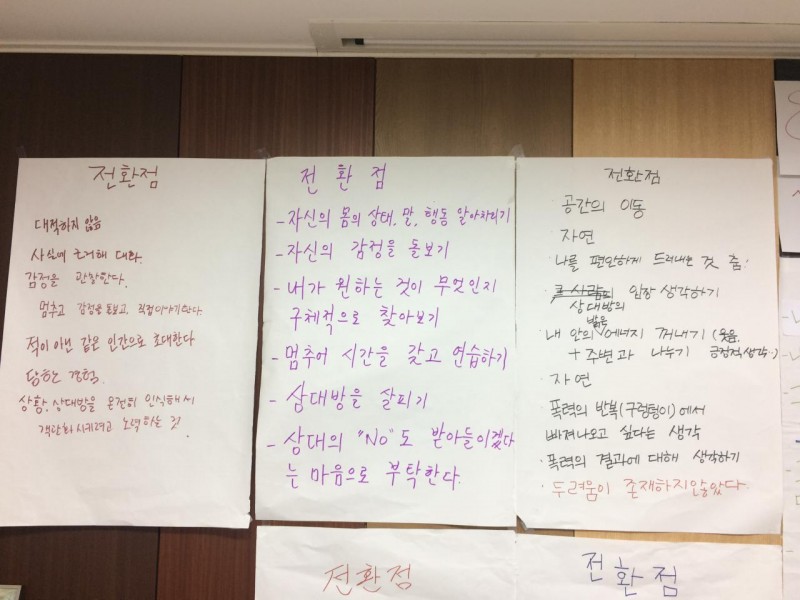 전환점
대적하지 않음
사실에 근거해 대화.
감정을 관찰한다.
멈추고 감정을 돌보고, 직접이야기한다.
적이 아닌 같은 인간으로 초대한다
당하는 경험.
상황, 상대방을 온전히 인식해서
객관화시키려고 노력하는 것!
전환점
- 자신의 몸의 상태, 말, 행동 알아차리기
- 자신의 감정을 돌보기
- 내가 원하는 것이 무엇인지
구체적으로 찾아보기
- 멈추어 시간을 갖고 연습하기
- 상대방을 살피기
- 상대의 "No"도 받아들이겠다
는 마음으로 부탁한다.
전환점
· 공간의 이동
자연
· 나를 편안하게 드러내는 것 춤.
입장 생각하기
상대방의
밝은
내 안의 에너지 꺼내기 (웃음.
+ 주변과 나누기 긍정적 생각··)
자연
· 폭력의 반복(구렁텅이)에서
빠져나오고 싶다는 생각
· 폭력의 결과에 대해 생각하기
· 두려움이 존재하지않았다.
전환점
전환점